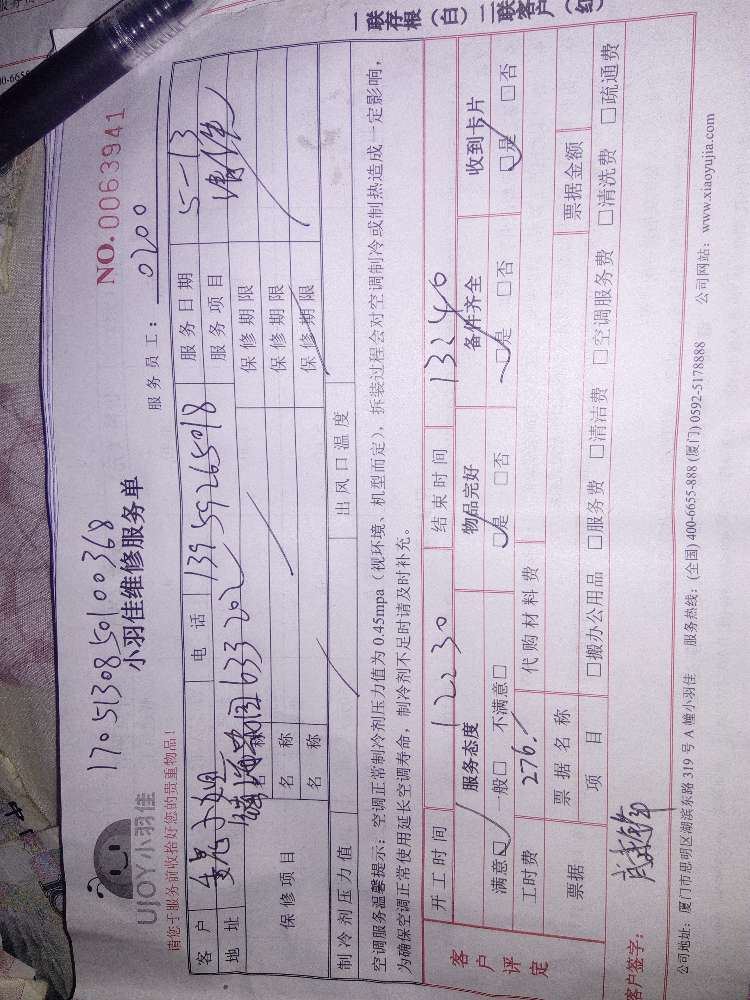 一联存根（白）二联客户（红
17051308550100368
UJOY小羽佳
小羽佳维修服务单
NO.0063941
请您于服务前收拾好您的贵重物品！
服务员工：0200
客户 小姐 电话 13959265018 服务日期 5-13
地址 633-202 服务项目
保修项目 名称 保修期限
名称 保修期限
名称 保修期限
制冷剂压力值 出风口温度
空调服务温馨提示：空调正常制冷剂压力值为0.45mpa（视环境、机型而定），拆装过程会对空调制冷或制热造成一定影响，
为确保空调正常使用延长空调寿命，制冷剂不足时请及时补充。
开工时间 12230 结束时间 13240
客户评定 服务态度 物品完好 备件齐全 收到卡片
满意□ 一般□ 不满意□ □是 □否 □是 □否 □是 □否
工时费 276. 代购材料费
票据 票据名称 票据金额
项目 □搬办公用品 □服务费 □清洁费 □空调服务费 □清洗费 □疏通费
客户签字：
公司地址：厦门市思明区湖滨东路319号A幢小羽佳 服务热线：(全国) 400-6655-888 (厦门) 0592-5178888 公司网站：www.xiaoyujia.com